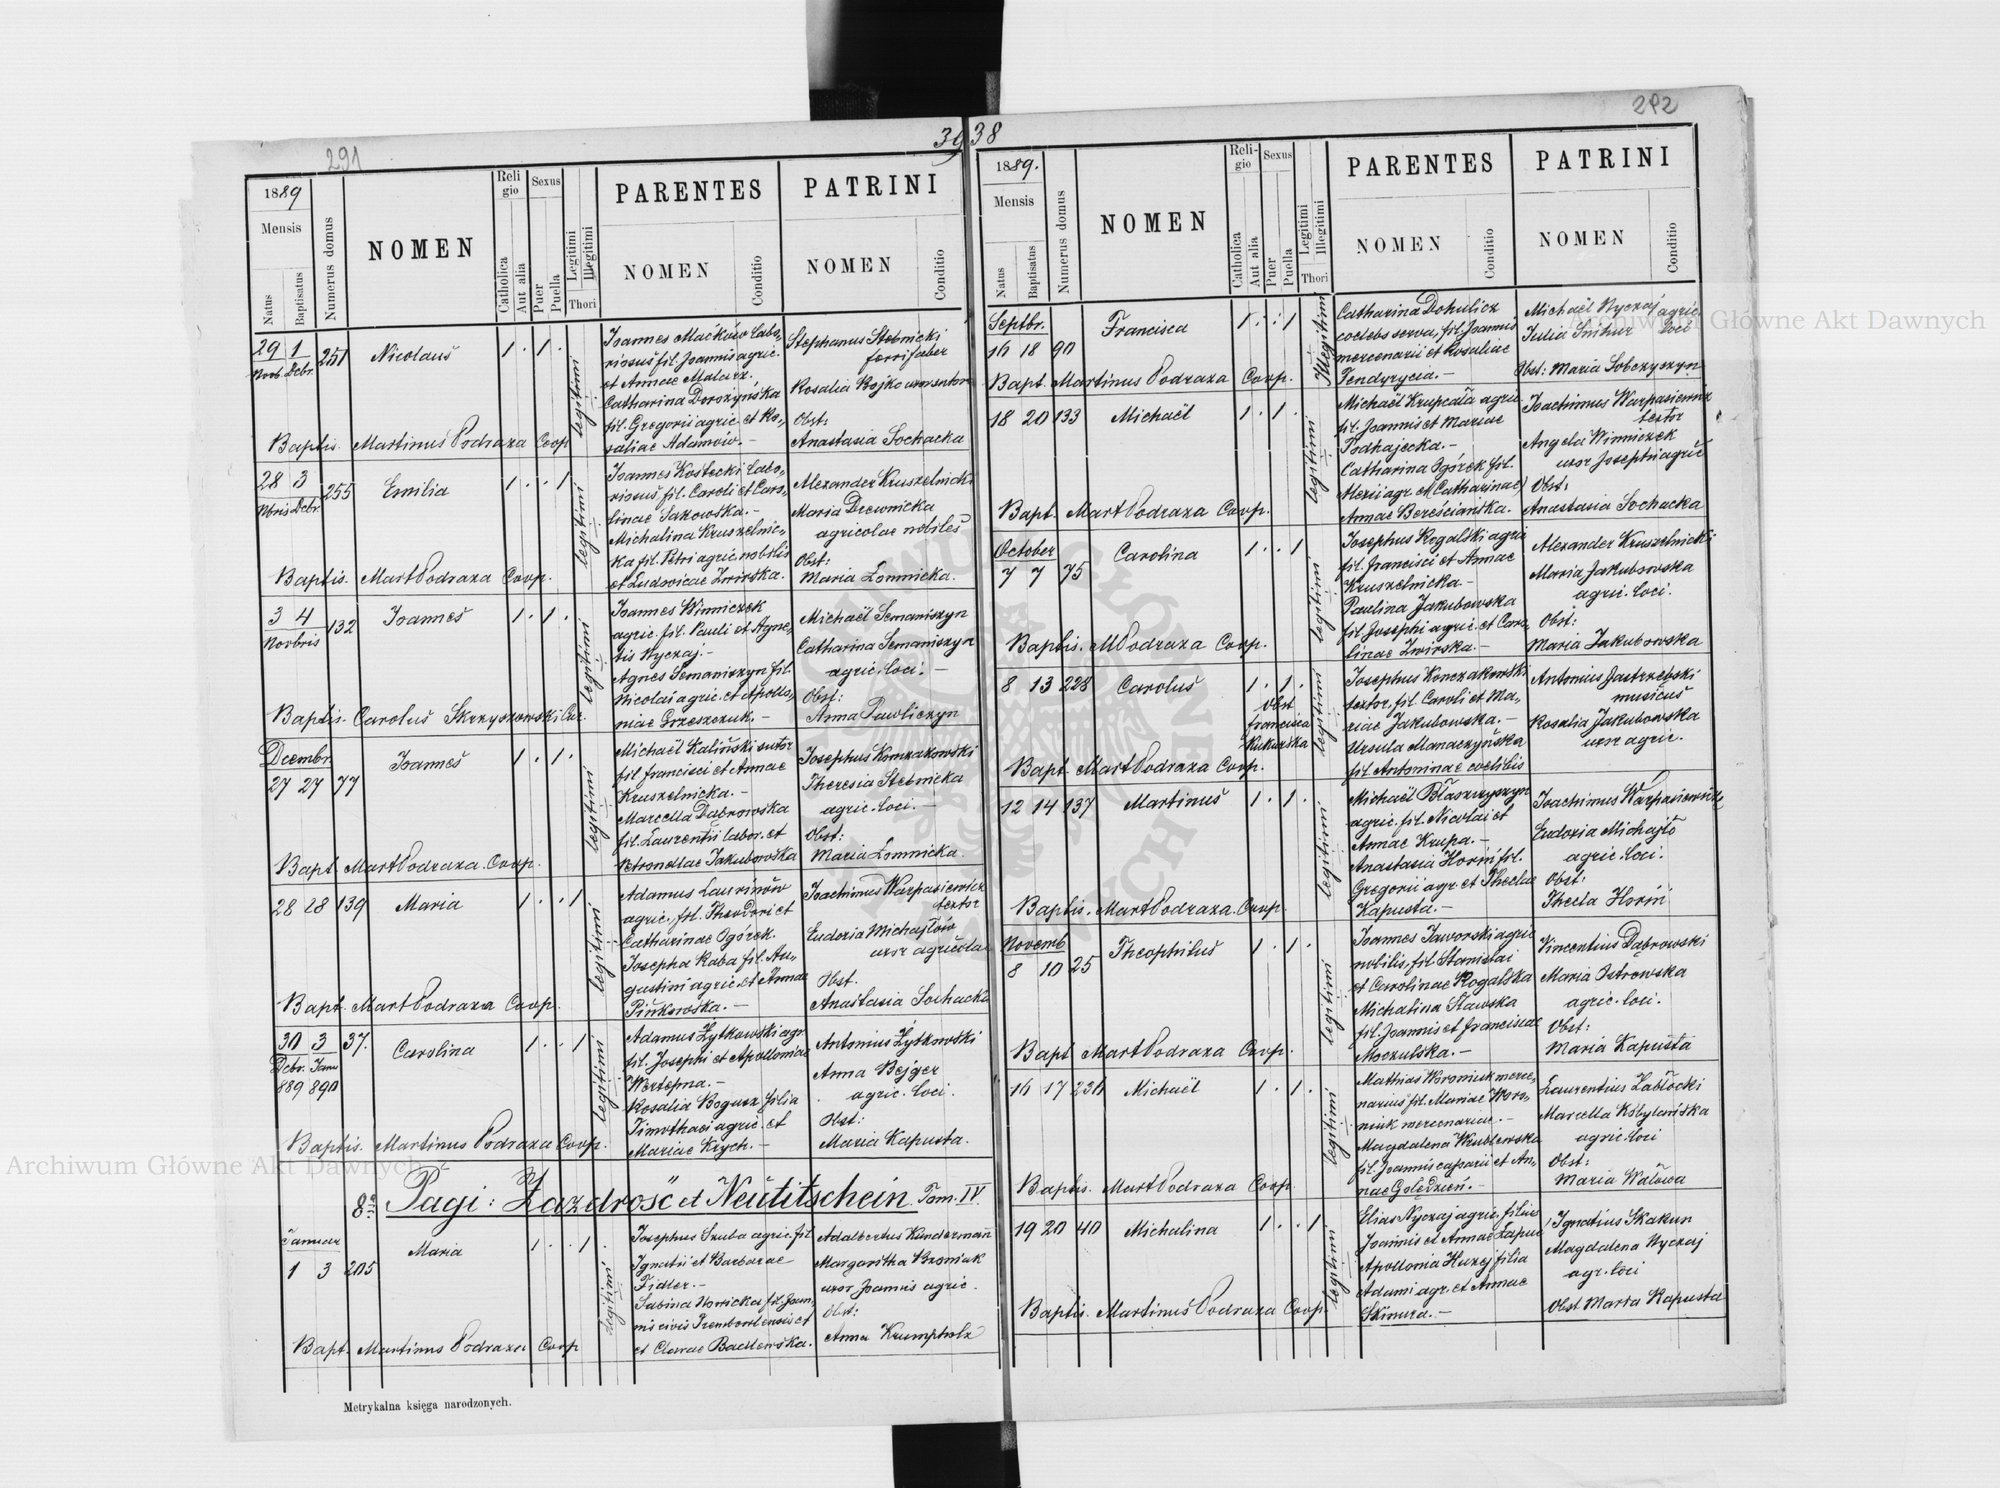 291
39
1889
Mensis
Natus
Baptisatus
Numerus domus
NOMEN
Religio
Catholica
Aut alia
Sexus
Puer
Puella
Legitimi
Illegitimi
Thori
PARENTES
NOMEN
Conditio
PATRINI
NOMEN
Conditio
29 1 251 Nicolaus 1 · 1 ·
Novb. Dcbr.
legitimi
Joannes Maćków labo-
riosus fil. Joannis agric.
et Annae Malarz.
Catharina Doroszyńska
fil. Gregorii agric. et Ro-
saliae Adamów. –
Stephanus Stebnicki
ferrifaber
Rosalia Bojko uxor sutoris
Obst:
Anastasia Sochacka
Baptis. Martinus Podraza Coop
28 3 255 Emilia 1 · · 1
Nbris Dcbr.
legitimi
Joannes Kostecki labo-
riosus fil. Caroli et Caro-
linae Sakowska. –
Michalina Kruszelnic-
ka fil. Petri agric. nobilis
et Ludovicae Zwirska.
Alexander Kruszelnicki
Maria Drewnicka
agricolae nobiles
Obst:
Maria Łomnicka.
Baptis. Mart Podraza Coop.
3 4 132 Joannes 1 · 1 ·
Novbris
legitimi
Joannes Winniczek
agric. fil. Pauli et Agne-
tis Nyczaj. –
Agnes Semaniszyn fil.
Nicolai agric. et Apollo-
niae Grzeszczuk. –
Michaël Semaniszyn
Catharina Semaniszyn
agric. loci. –
Obst:
Anna Pawliczyn
Baptis. Carolus Skrzyszowski Cur.
Decembr.
27 27 77 Joannes 1 · 1 ·
legitimi
Michaël Kaliński sutor
fil. Francisci et Annae
Kruszelnicka. –
Marcella Dąbrowska
fil. Laurentii labor. et
Petronellae Jakubowska
Josephus Konczakowski
Theresia Stebnicka
agric. loci. –
Obst:
Maria Łomnicka
Bapt. Mart Podraza. Coop.
28 28 139 Maria 1 · · 1
legitimi
Adamus Laurinów
agric. fil. Theodori et
Catharinae Ogórek.
Josepha Kaba fil. Au-
gustini agric. et Annae
Pińkowska. –
Joachimus Warpasiewicz
textor
Eudoxia Michajłów
uxor agricolae
Obst.
Anastasia Sochacka
Bapt. Mart Podraza Coop.
30 3 37. Carolina 1 · · 1
Dcbr. Janu
889 890
legitimi
Adamus Żytkowski agr.
fil. Josephi et Apolloniae
Wertepna. –
Rosalia Bogusz filia
Timothaei agric. et
Mariae Krych. –
Antonius Żytkowski
Anna Bejger
agric. loci.
Obst:
Maria Kapusta.
Baptis. Martinus Podraza Coop.
8 Pagi: Zazdrość et Neutitschein. Tom. IV.
Januar
1 3 205 Maria 1 · · 1
legitimi
Josephus Szuba agric. fil
Ignatii et Barbarae
Fidler. –
Sabina Nowicka fil. Joan-
nis civis Trembowlensis et
et Clarae Badlewska.
Adalbertus Kindermann
Margaritha Wozniak
uxor Joannis agric.
Obst:
Anna Krumpholz
Bapt. Martinus Podraza Coop
Metrykalna księga narodzonych.
292
38
1889.
Mensis
Natus
Baptisatus
Numerus domus
NOMEN
Religio
Catholica
Aut alia
Sexus
Puer
Puella
Legitimi
Illegitimi
Thori
PARENTES
NOMEN
Conditio
PATRINI
NOMEN
Conditio
Septbr.
16 18 90 Francisca 1 · · 1
Illegitimi
Catharina Dohulicz
coelebs serva, fil. Joannis
mercenarii et Rosaliae
Tendyrycia. –
Michaël Nyczaj agric.
Julia Snihur loci
Obst: Maria Sobczyszyn
Bapt. Martinus Podraza Coop.
18 20 133 Michaël 1 · 1 ·
legitimi
Michaël Krupcała agric.
fil. Joannis et Mariae
Podhajecka. –
Catharina Ogórek fil.
Alexii agr. et (Catharinae)
Annae Bereściańska.
Joachimus Warpasiewicz
textor
Angela Winniczek
uxor Josephi agric
Obst:
Anastasia Sochacka
Bapt. Mart Podraza Coop.
October
7 7 75 Carolina 1 · · 1
legitimi
Josephus Rogalski agric
fil. Francisci et Annae
Kruszelnicka. –
Paulina Jakubowska
fil. Josephi agric. et Caro-
linae Zwirska. –
Alexander Kruszelnicki
Maria Jakubowska
agric. loci.
Obst:
Maria Jakubowska
Baptis. M Podraza Coop.
8 13 228 Carolus 1 · 1 ·
Obst
Francisca
Kukurska
legitimi
Josephus Konczakowski
textor. fil. Caroli et Ma-
riae Jakubowska. –
Ursula Manaczyńska
fil. Antoninae coelibis
Antonius Jastrzebski
musicus
Rosalia Jakubowska
uxor agric.
Bapt. Mart Podraza Coop.
12 14 137 Martinus 1 · 1 ·
legitimi
Michaël Błaszczyszyn
agric. fil. Nicolai et
Annae Krupa. –
Anastasia Horiń fil.
Gregorii agr. et Theclae
Kapusta. –
Joachimus Warpasiewicz
Eudoxia Michajło
agric. loci.
Obst:
Thecla Horiń
Baptis. Mart Podraza. Coop.
Novemb
8 10 25 Theophilus 1 · 1 ·
legitimi
Joannes Jaworski agric
nobilis, fil Stanislai
et Carolinae Rogalska
Michalina Sławska
fil. Joannis et Franciscae
Moczulska. –
Vincentius Dąbrowski
Maria Ostrowska
agric. loci.
Obst:
Maria Kapusta
Bapt Mart Podraza Coop.
16 17 230 Michaël 1 · 1 ·
legitimi
Mathias Woroniuk merce-
narius fil. Mariae Woro-
niuk mercenariae. –
Magdalena Wrublewska
fil. Joannis capsarii et An-
nae Golędzień. –
Laurentius Zabłocki
Marcella Kobylańska
agric. loci
Obst:
Maria Wałowa
Baptis. Mart Podraza Coop
19 20 40 Michalina 1 · · 1
legitimi
Elias Nyczaj agric. filius
Joannis et Annae Łapus
Apollonia Huzej filia
Adami agr. et Annae
Skimira. –
Ignatius Skakun
Magdalena Nyczaj
agr. loci
Obst Maria Kapusta
Baptis. Martinus Podraza Coop.
Archiwum Główne Akt Dawnych
Archiwum Główne Akt Dawnych